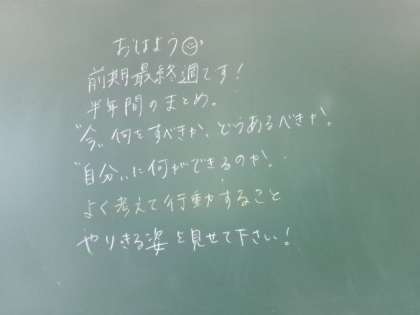 おはよう☺
前期最終週です!
半年間のまとめ。
"今"何をすべきか、どうあるべきか。
"自分"に何ができるのか。
よく考えて行動すること
やりきる姿を見せて下さい!